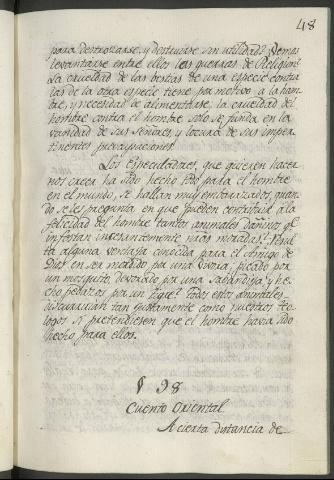 48
para destrozarse, y destruirse sin utilidad? Vemos
levantarse entre ellos las guerras de Religion?
La crueldad de las bestias de una especie contra
las de la otra especie tiene por motivo a la ham
bre, y necesidad de alimentarse; la crueldad del
hombre contra el hombre solo se funda en la
vanidad de sus Señores, y locura de sus imper
tinentes preocupaciones.
Los Especuladores, que quieren hacer
nos creer ha sido hecho todo para el hombre
en el mundo, se hallan muy embarazados, quan
do se les pregunta en que pueden contribuir a la
felicidad del hombre tantos animales dañinos q.e
infestan incesantemente nras moradas?
ta alguna ventaja conocida para el Amigo de
Dios en ser mordido por una vivora; picado por
un mosquito, devorado por una sabandija, y he
cho pedazos por un tigre? todos estos animales
discurririan tan justamente como nuestros Teo
logos si pretendiesen que el hombre havia sido
hecho para ellos.
§ 98
Cuento Oriental
A cierta distancia de